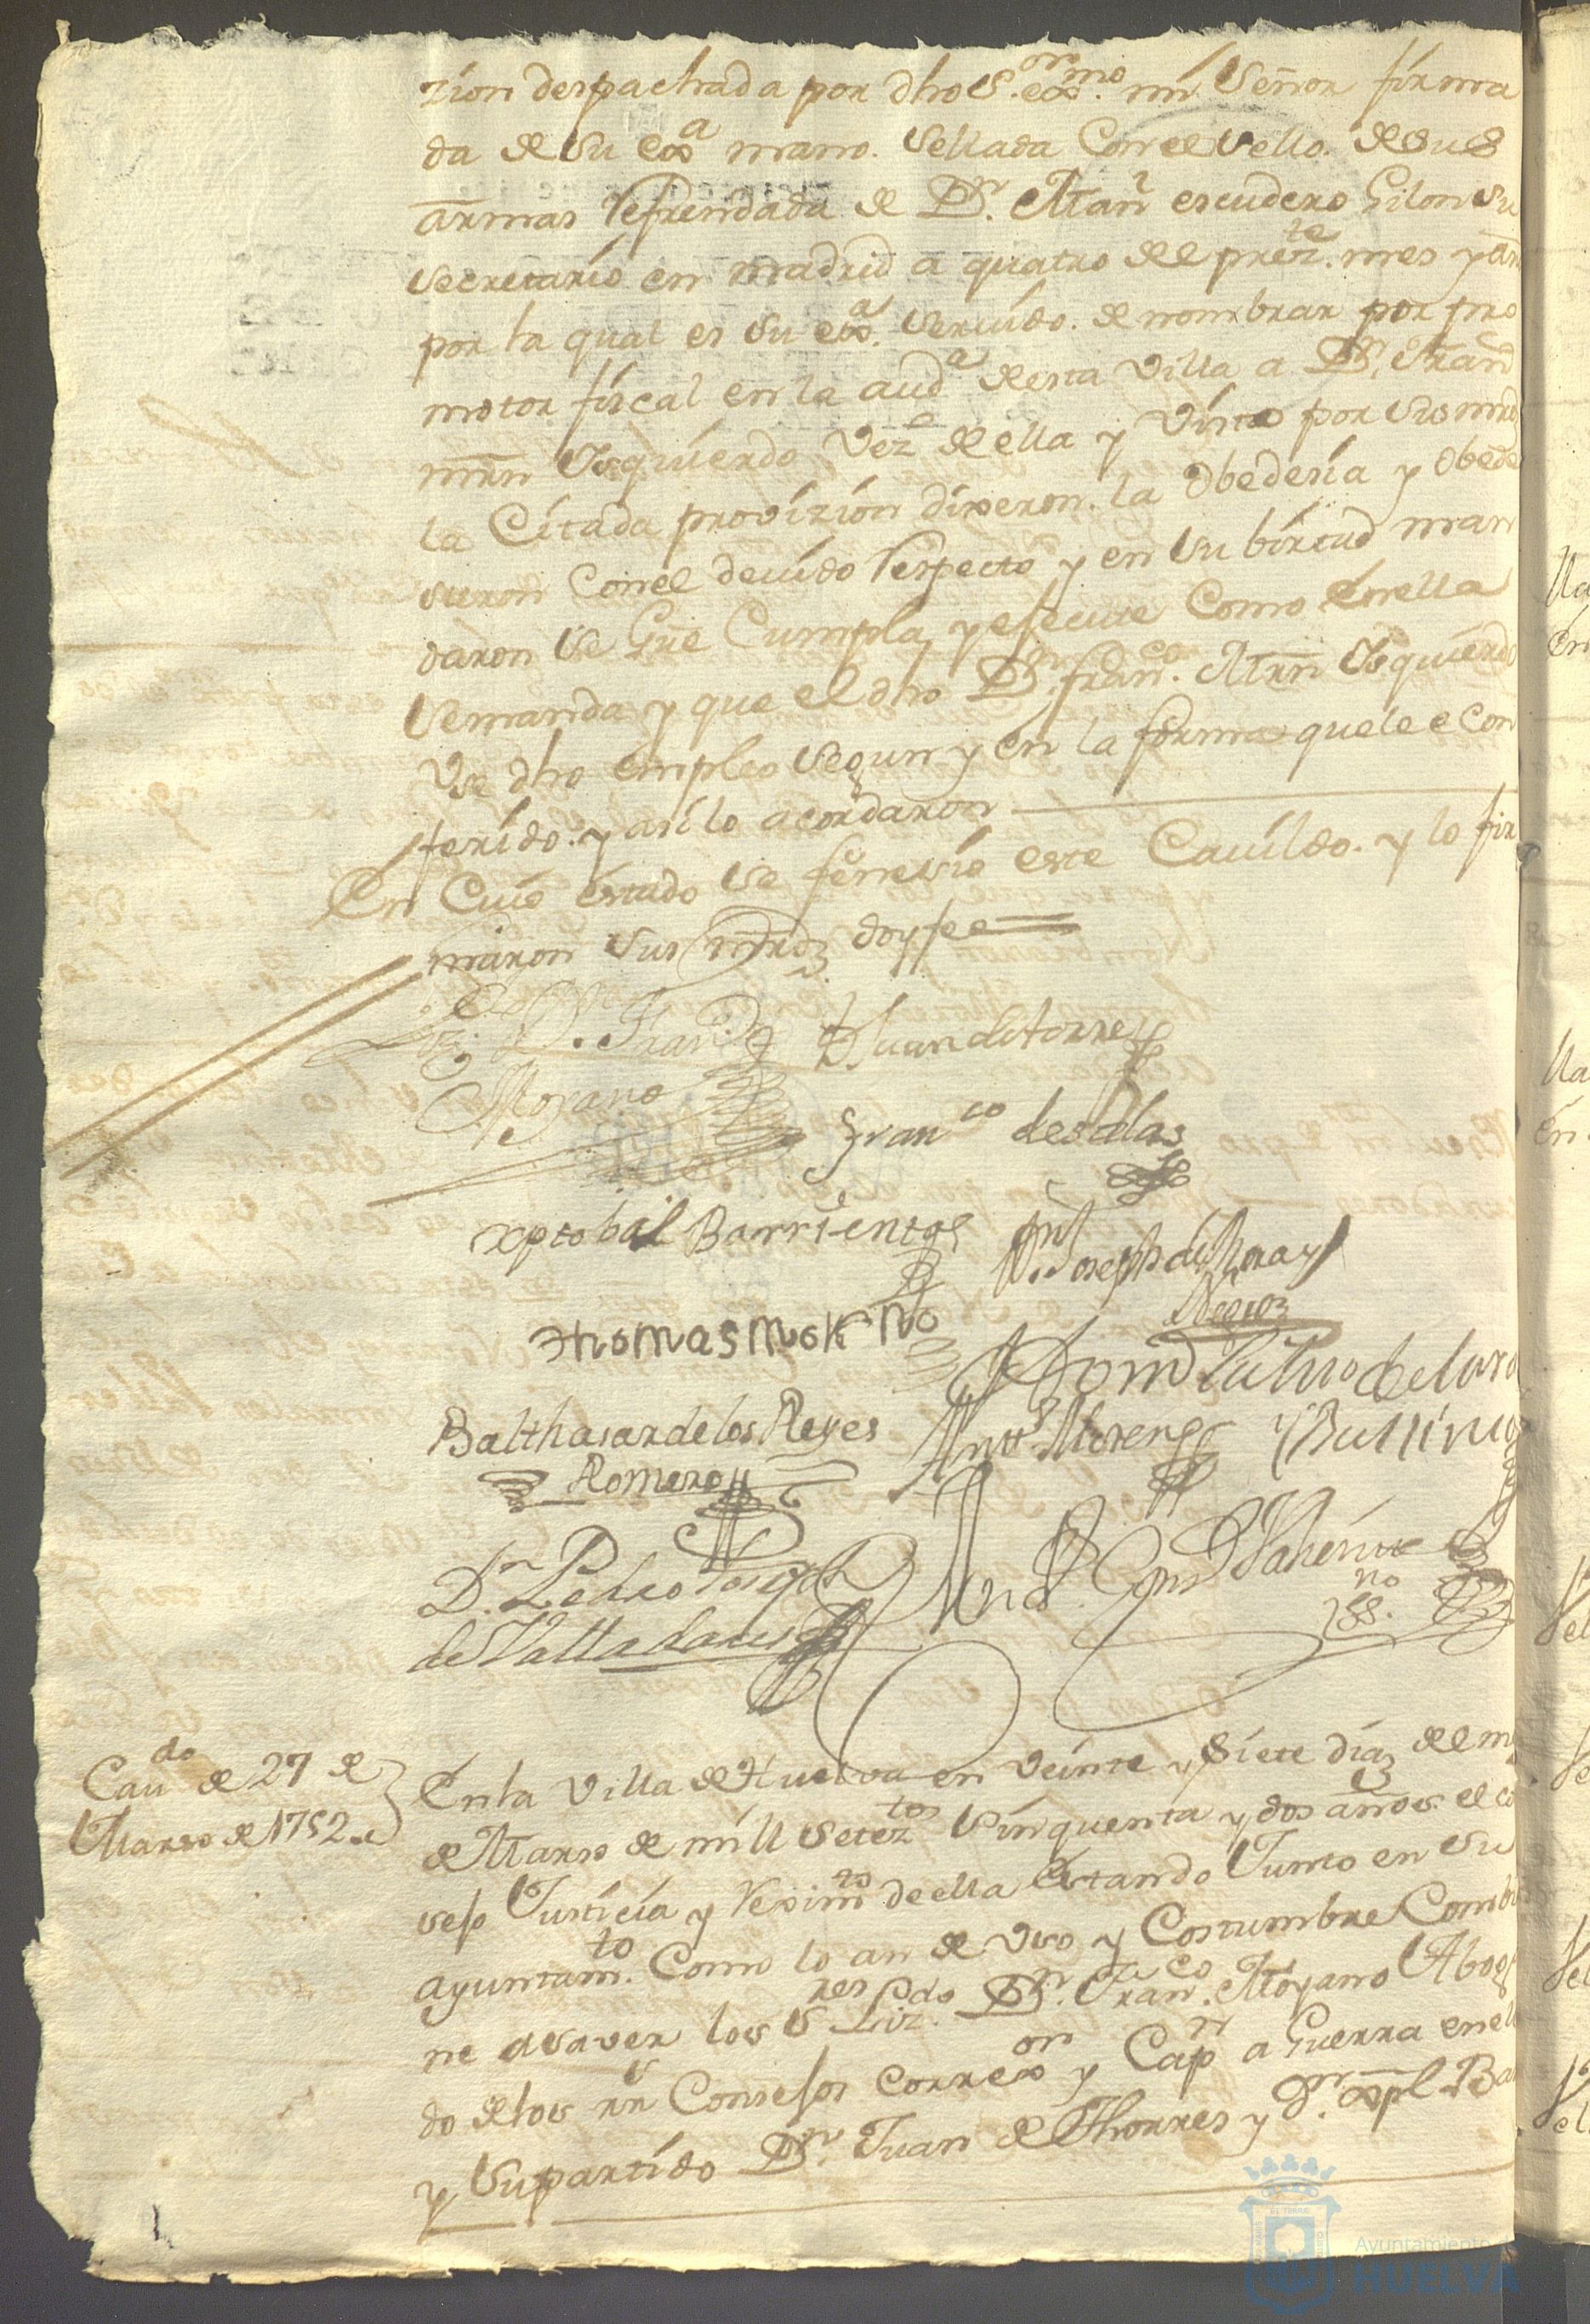 zion despachada por dho S.or exmo. mi Señor firma
da de su exa mano. Sellada Con el sello. de sus
armas Refrendada de Dn. Man.l escudero Gilon su
Secretario en Madrid a quatro del prezte. mes y añ
por la qual es su exa. servido. de nombrar por pro
motor fiscal en la auda de esta Villa a Dn. Franco
Mrn Ysquierdo Vezo de ella y Vista por sus mrds
la Citada provizion dixeron. la Obedesia y Obede
sieron Con el devido Respecto y en su birtud man
daron Se Gue Cumpla y execute Como en ella
Se manda y que el dho Dn. franco. Mrn Ysquierdo
Use dho empleo segun y en la forma que le e con
ferido. y asi lo acordaron
En Cuio estado se fenesio este Cavildo. y lo fir
maron Sus mrds doy fee
Lizdo D. Franco Juan de torres
Moyano
Franco de salas
xptobal Barrientos Dn Joseph de
Thomas Moreno
Balthasar de los Reyes Anto Moreno
Romero
Dn. Pedro
de Valladares
no
Cavdo de 27 de
Marso de 1752
En la Villa de Huelva en veinte y siete dias del m
de Marso de mill Setezto Sinquenta y dos años el co
sejo Justicia y Reximto de ella estando Junto en su
ayuntamto. Como lo an de Uso y Costumbre Combi
ne a saver los Sres Lizdo Dn. Franco. Moyano Aboga
do de los Rs Consejos correxor y Capn a Guerra en ell
y su partido Dn. Juan de Thorres y Dn. xpl Bar
Ayuntamiento
HUELVA